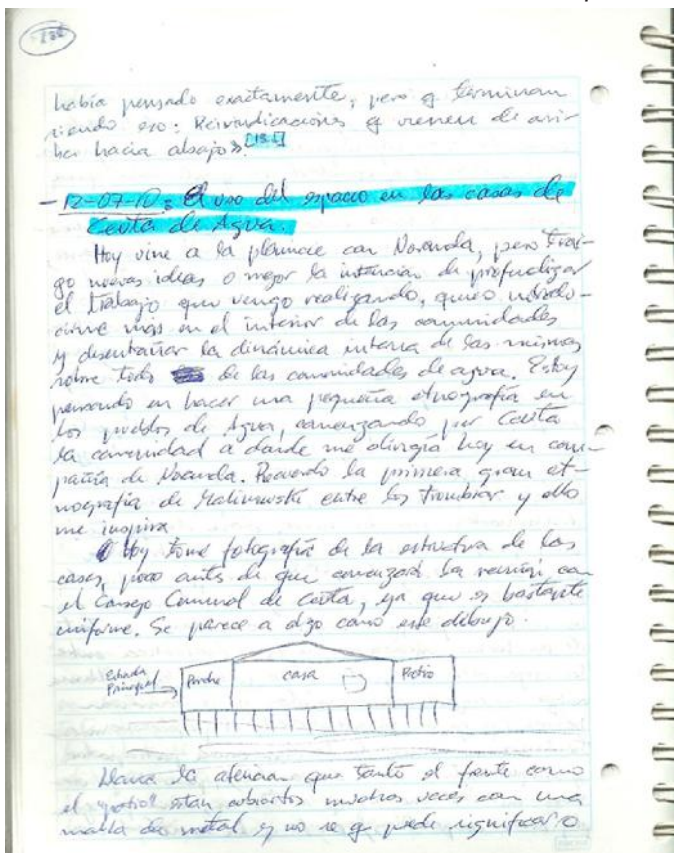 había pensado exactamente, pero q terminan
siendo eso: Reivindicaciones q vienen de arri-
ba hacia abajo».
- 12-07-10: El uso del espacio en las casas de
Ceuta de Agua.
Hoy vine a la planicie con Noranda, pero trai-
go nuevas ideas o mejor la intención de profudizar
el trabajo que vengo realizando, quiero introdu-
cirme más en el interior de las comunidades
y desentrañar la dinámica interna de las mismas
sobre todo de las comunidades de agua. Estoy
pensando en hacer una pequeña etnografía en
los pueblos de Agua, comenzando por Ceuta
la comunidad a donde me dirigía hoy en com-
pañía de Noranda. Recuerdo la primera gran et-
nografía de Malinowski entre los y ello
me inspira
Hoy tomé fotografía de la estructura de las
casas, poco antes de que comenzará la reunión con
el Consejo Comunal de Ceuta, ya que es bastante
uniforme. Se parece a algo como este dibujo.
Entrada
Principal
Porche
casa
Patio
Llama la atención que tanto el frente como
el "patio" están cubiertos muchas veces con una
malla de metal y no se q puede significar o